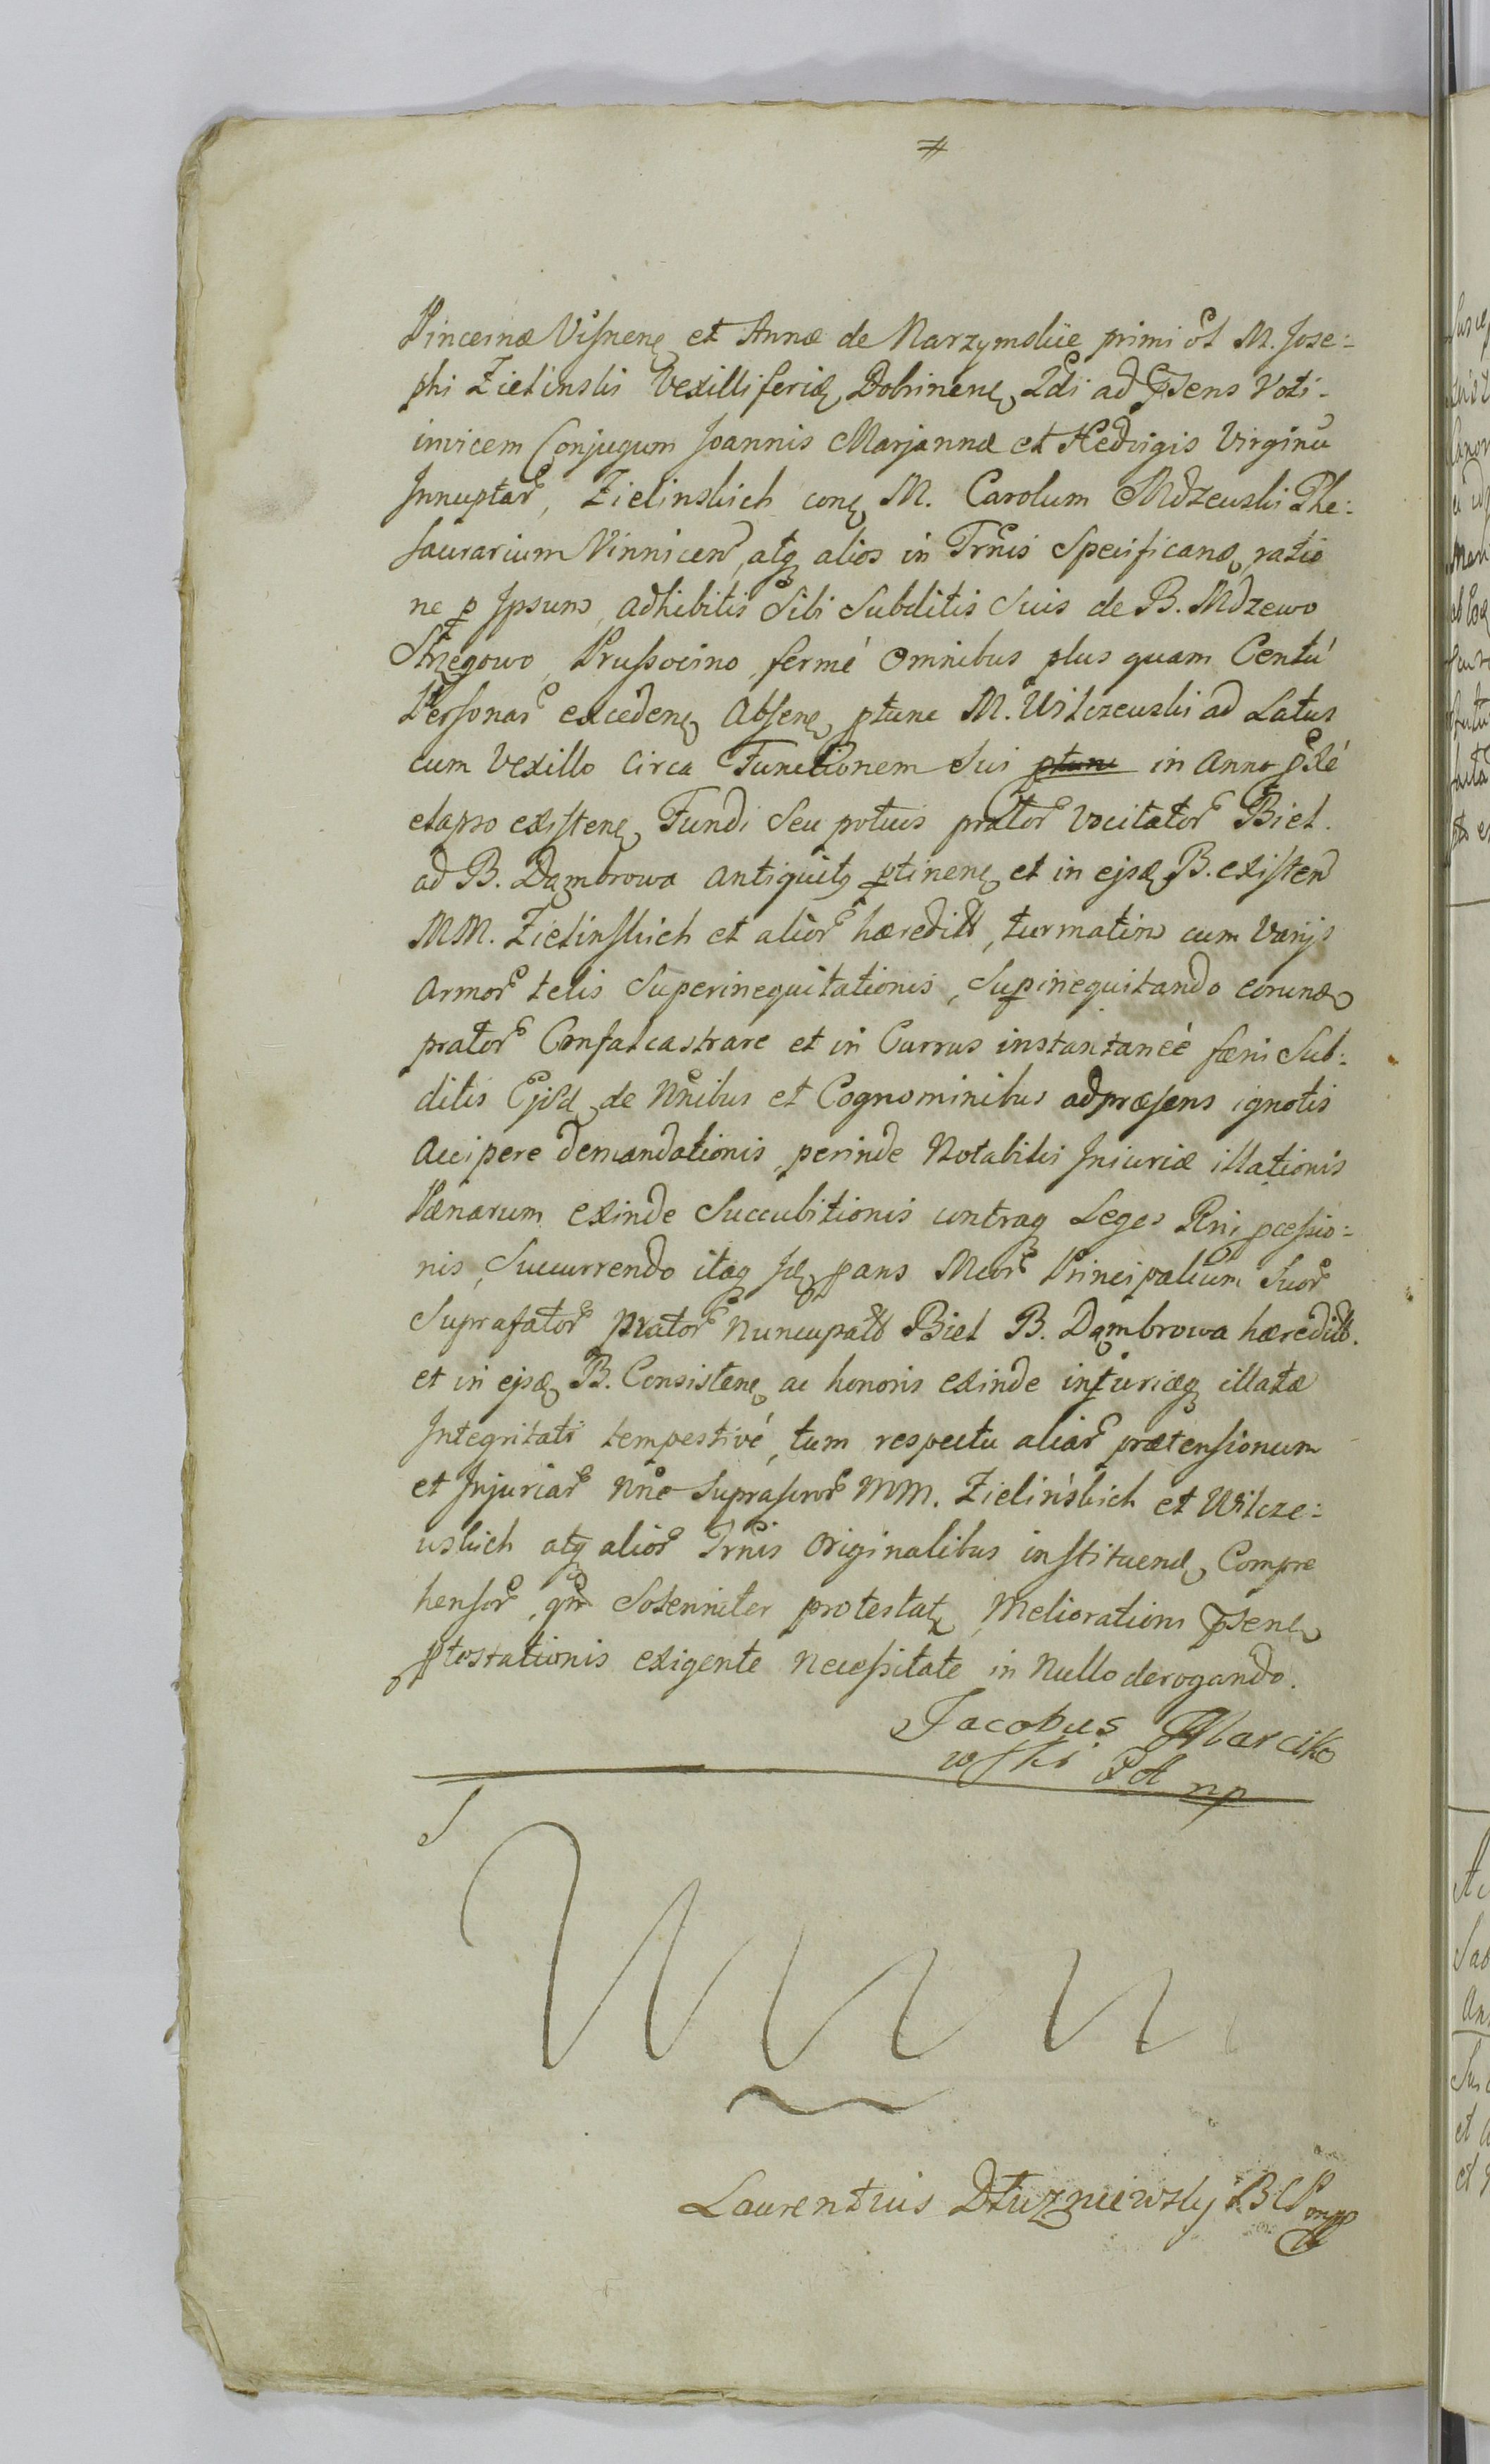 #
Pincernæ Visnenę et Annæ de Narzymskie primi ol M. Jose:
phi Zielinski Vexilliferię Dobrinenę 2di ad psens Voti
invicem Conjugum Joannis Marjannæ et Hedvigis Virginu
Innuptar, Zielinskich conę M. Carolum Mdzewski The:
saurarium Vinnicen, atq alios in Trnis Specificanę ratio
ne p Ipsum adhibitis Sibi Subditis Suis de B. Mdzewo
Strzegowo, Prussocino fermé Omnibus plus quam Centú
Personas excedenę Absenę ptunc M. Wilczewski ad Latus
cum Vexillo Circa Functionem Sui ptunc in Anno pxé
elapso existenę Fundi Seu potius prator vocitator Biel.
ad B. Dąmbrowa antiquitq ptinenę et in ejsdę B. existen
MM. Zielinskich et alior hæredit, turmatim cum Varijs
Armor telis Superinequitationis, Supinequitando eorundę
prator Confalcastrare et in Currus instantaneé fæni Sub:
ditis Ejsd de Nnibus et Cognominibus adpræsens ignotis
Accipere demandationis, perinde Notabilis Injuriæ illationis
Pænarum exinde Succubitionis contraq Leges Rni pcessio:
nis, Succurrendo itaq Ję pans Meor Principalium Suor
Suprafator prator nuncupat Biel B. Dąmbrowa hæredit.
et in ejsdę B. Consistenę ac honoris exinde injuriæq illatæ
Integritati tempestivé, tum respectu aliar prætensionum
et Injuriar Nne Suprascror MM. Zielińskich et Wilcze:
wskich atq alior Trnis Originalibus instituendę Compre
hensor, qm Solenniter protestatę Melioration psenę
ptestationis exigente necessitate in Nullo derogando.
Jacobus Marciko
wski
Laurentius Dłużniewsky BCP mpp